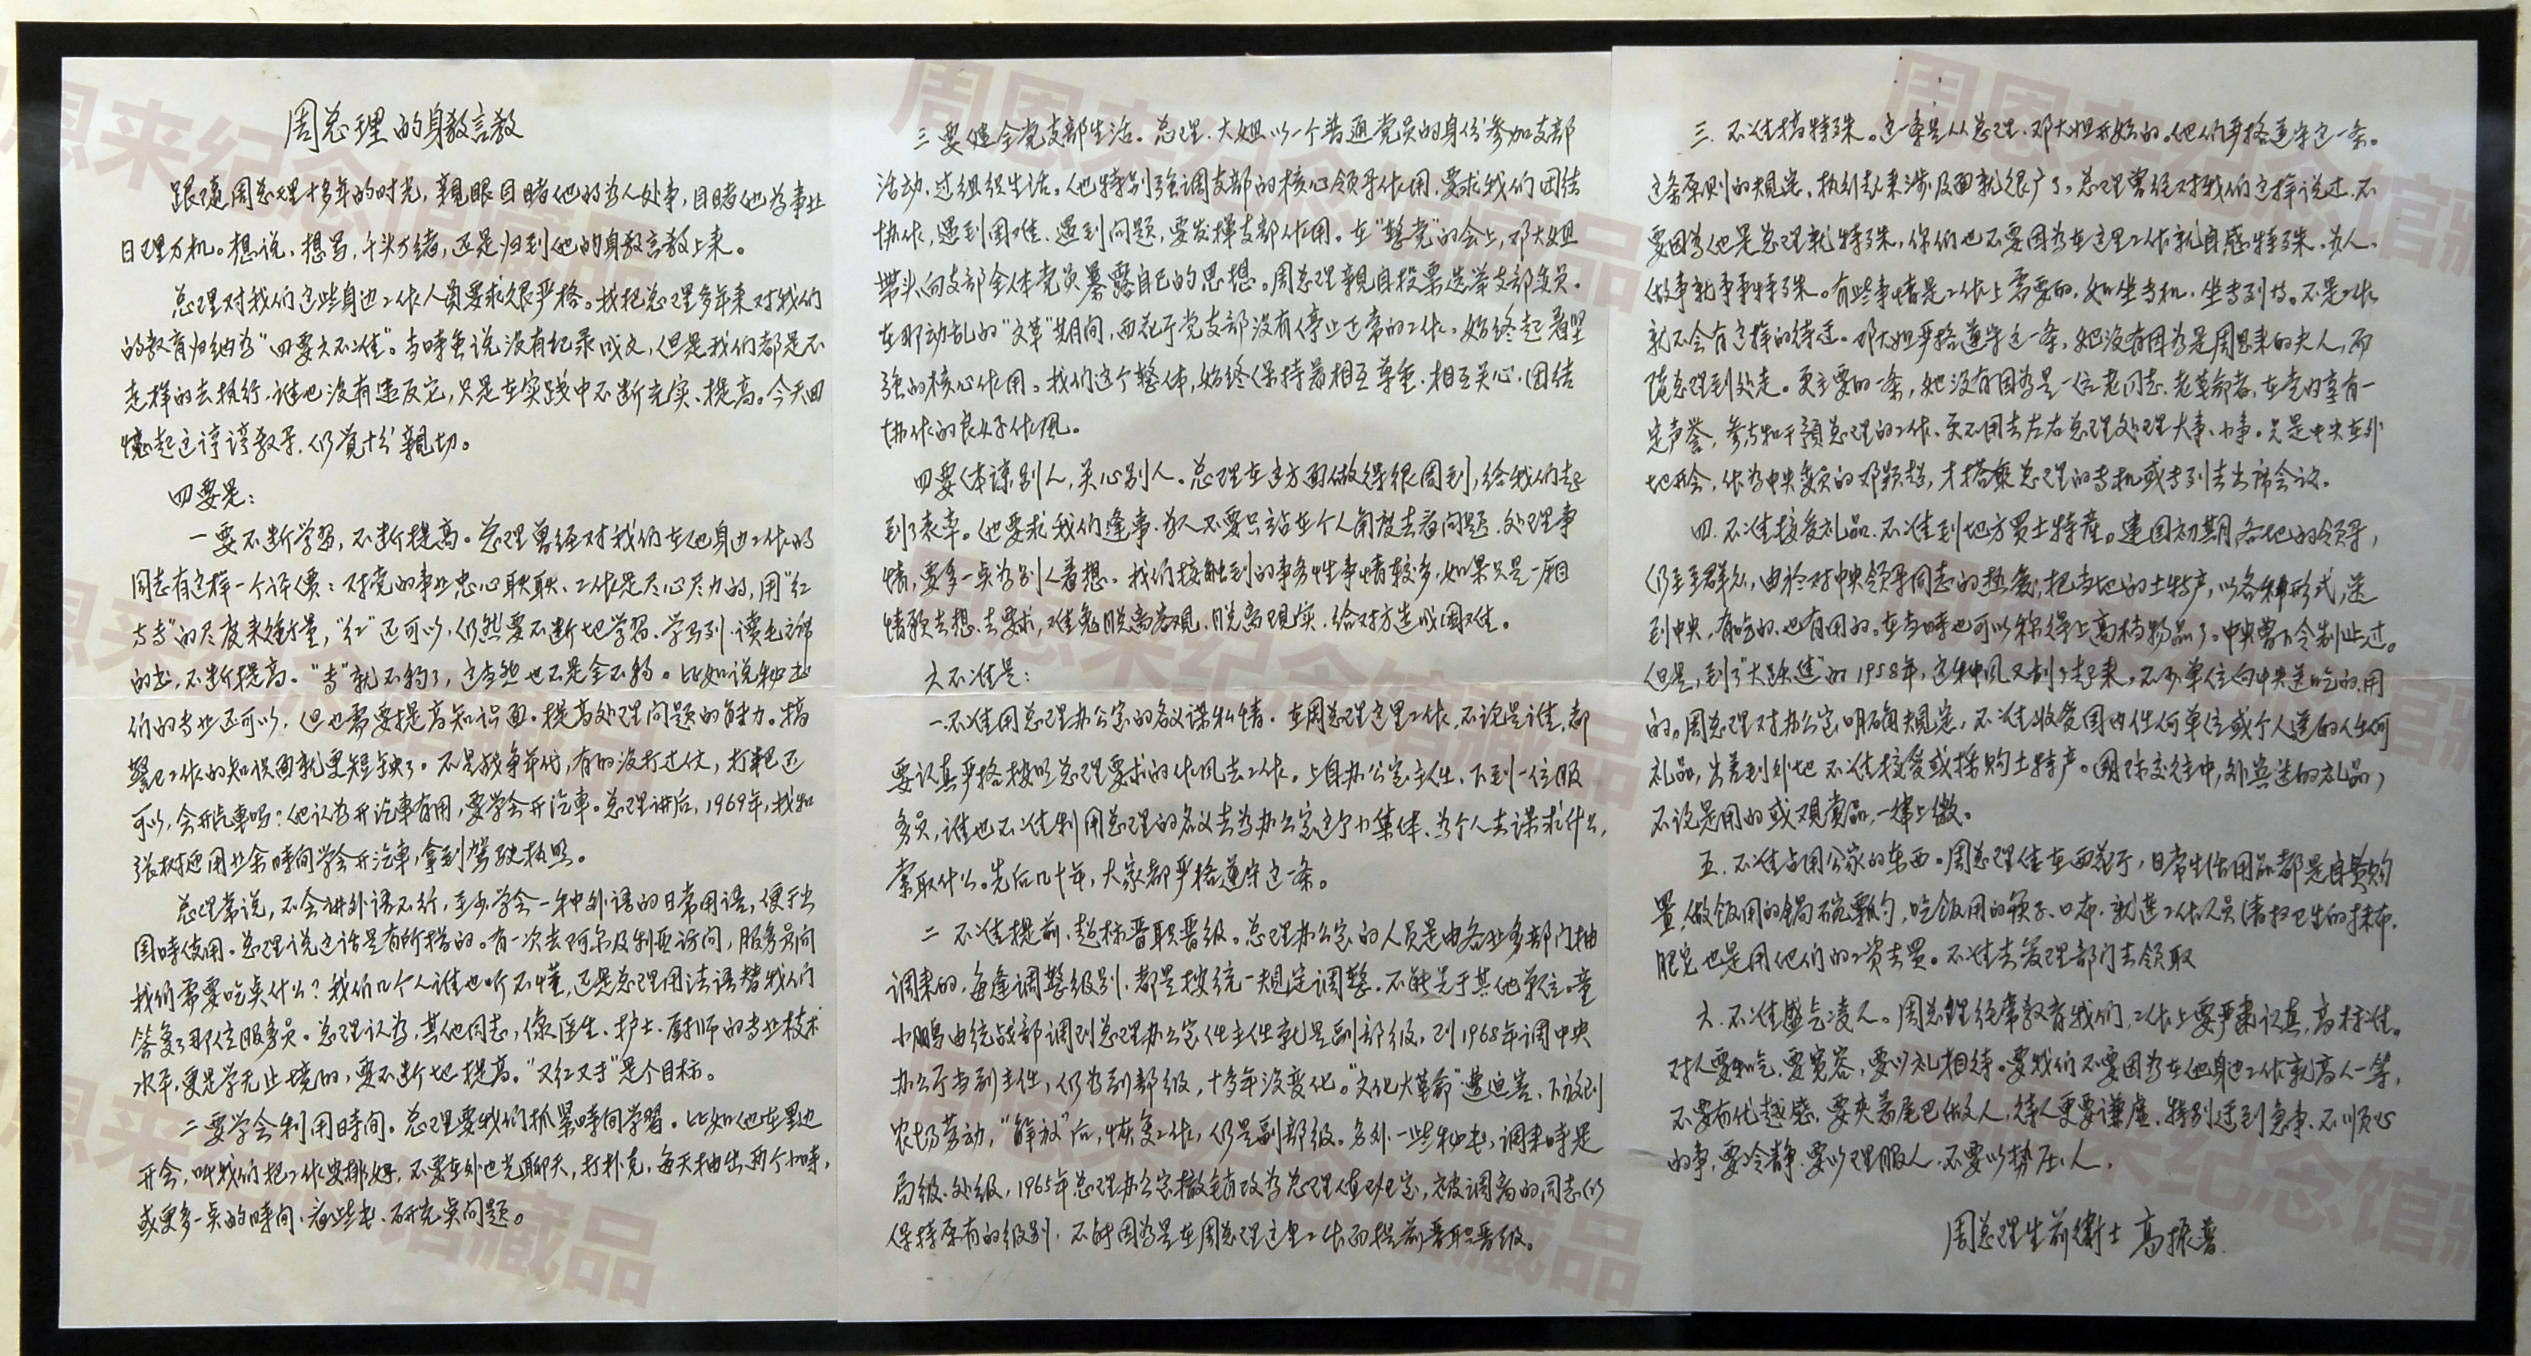 周总理的身教言教
跟随周总理十多年的时光，親眼目睹他的为人处事，目睹他为事业
日理万机。想说、想写，千头万绪，还是归到他的身教言教上来。
总理对我们这些身边工作人员要求很严格。我把总理多年来对我们
的教育归纳为“四要六不准”。当時虽说没有纪录成文，但是我们都是不
走样的去执行，谁也没有违反它，只是在实践中不断充实、提高。今天回
憶起这谆谆教导，仍觉十分親切。
四要是：
一要不断学習，不断提高。总理曾经对我们在他身边工作的
同志有这样一个评價：对党的事业忠心耿耿、工作是尽心尽力的，用“红
与专”的尺度来衡量，“红”还可以，仍然要不断地学習、学马列、读毛主席
的书，不断提高。“专”就不夠了，这当然也不是全不夠。比如说秘书
们的专业还可以，但也需要提高知识面。提高处理问题的能力。搞
警卫工作的知识面就更短缺了。不是战争年代，有的没打过仗，打靶还
可以，会开汽車吗？他认为开汽車有用，要学会开汽車。总理讲后，1969年，我和
张树迎用业余時间学会开汽車，拿到驾驶执照。
总理常说，不会讲外语不行，至少学会一种外语的日常用语，便于出
国時使用。总理说这话是有所指的。有一次去阿尔及利亚访问，服务员问
我们需要吃点什么？我们几个人谁也听不懂，还是总理用法语替我们
答复了那位服务员。总理认为，其他同志，像医生、护士、厨师的专业技术
水平，更是学无止境的，要不断地提高。“又红又专”是个目标。
二要学会利用時间。总理要我们抓紧時间学習。比如他在里边
开会，叫我们把工作安排好，不要在外边光聊天，打扑克，每天抽出两个小時，
或更多一点的時间，看些书、研究点问题。
三要健全党支部生活。总理、大姐以一个普通党员的身份参加支部
活动，过组织生活。他特别强调支部的核心领导作用，要求我们团结
协作，遇到困难、遇到问题，要发揮支部作用。在“整党”的会上，邓大姐
带头向支部全体党员暴露自己的思想。周总理親自投票选举支部委员。
在那动乱的“文革”期间，西花厅党支部没有停止正常的工作，始终起着坚
强的核心作用。我们这个整体，始终保持着相互尊重、相互关心、团结
协作的良好作风。
四要体谅别人，关心别人。总理在这方面做得很周到，给我们起
到了表率。他要求我们逢事、为人不要只站在个人角度去看问题、处理事
情，要多一点为别人着想。我们接触到的事务性事情较多，如果只是一厢
情願去想、去要求，难免脱离客观，脱离现实，给对方造成困难。
六不准是：
一不准用总理办公室的名义谋私情。在周总理这里工作，不论是谁，都
要认真严格按照总理要求的作风去工作。上自办公室主任、下到一位服
务员，谁也不准利用总理的名义去为办公室这个小集体、为个人去谋求什么，
索取什么。先后几十年，大家都严格遵守这一条。
二 不准提前、超标晋职晋级。总理办公室的人员是由各业务部门抽
调来的，每逢调整级别，都是按统一规定调整，不能先于其他单位。童
小鹏由统战部调到总理办公室任主任就是副部级，到1968年调中央
办公厅当副主任，仍为副部级，十多年没变化。“文化大革命”遭迫害，下放到
农场劳动，“解放”后，恢复工作，仍是副部级。另外一些秘书，调来時是
局级、处级，1965年总理办公室撤销改为总理值班室，被调离的同志仍
保持原有的级别，不能因为是在周总理这里工作而提前晋职晋级。
三、不准搞特殊。这一条是从总理、邓大姐开始的。他们严格遵守这一条。
这条原则的规定，执行起来涉及面就很广了。总理曾经对我们这样说过，不
要因为他是总理就特殊，你们也不要因为在这里工作就自感特殊，为人、
做事就事事特殊。有些事情是工作上需要的，如坐专机、坐专列等。不是工作
就不会有这样的待遇。邓大姐严格遵守这一条，她没有因为是周恩来的夫人，而
随总理到处走。更主要的一条，她没有因为是一位老同志、老革命者，在党内享有一
定声誉，参与和干预总理的工作、更不用去左右总理处理大事、小事。只是中央在外
地开会，作为中央委员的邓颖超，才搭乘总理的专机或专列去出席会议。
四、不准接受礼品、不准到地方买土特產。建国初期，各地的领导，
仍至于群众，由於对中央领导同志的热爱，把当地的土特产，以各种形式，送
到中央，有吃的、也有用的。在当時也可以称得上高档物品了。中央曾下令制止过。
但是，到了“大跃进”的1958年，这种风又刮了起来，不少单位向中央送吃的、用
的。周总理对办公室明确规定，不准收受国内任何单位或个人送的任何
礼品，出差到外地不准接受或採购土特产。国际交往中，外宾送的礼品，
不论是用的或观赏品，一律上缴。
五、不准占用公家的东西。周总理住在西花厅，日常生活用品都是自费购
置，做饭用的锅碗瓢勺，吃饭用的筷子、口布，就连工作人员清扫卫生的抹布、
肥皂也是用他们的工资去买。不准去管理部门去领取
六、不准盛气凌人。周总理经常教育我们，工作上要严肃认真，高标准。
对人要和气，要宽容，要以礼相待。要我们不要因为在他身边工作就高人一等，
不要有优越感，要夹着尾巴做人，待人更要谦虚，特别逢到急事、不顺心
的事，要冷静，要以理服人，不要以势压人。
周总理生前衛士 高振普
周恩来纪念馆藏品